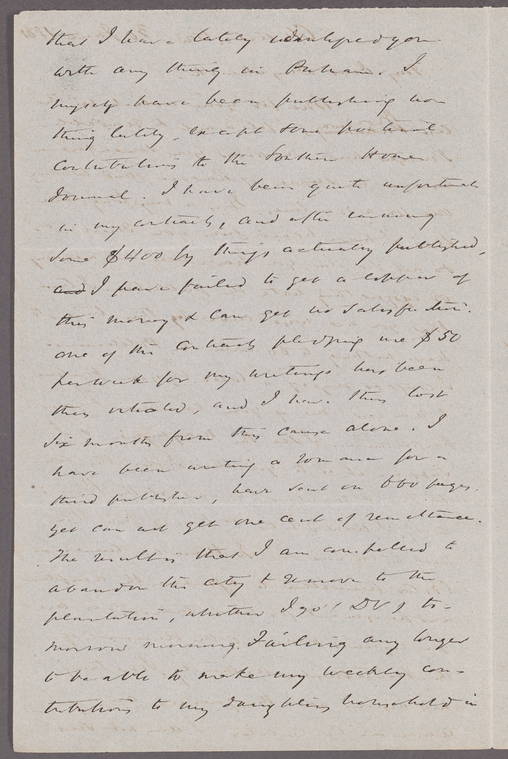 that I have lately identified you
with any thing in Putnam. I
myself have been publishing no
thing lately, except some poetical
contributions to the Southern Home
Journal. I have been quite unfortunate
in my contracts, and after earning
some $400 by things actually published,
and I have failed to get a copper of
this money & can get no satisfaction.
one of the contracts pledging me $50
per week for my writings has been
thus vitiated, and I have thus lost
six months from this cause alone. I
have been writing a romance for a
third publisher, have sent on 660 pages.
yet can not get one cent of remittance.
The result is that I am compelled to
abandon the city & remove to the
plantation, whither I go (DV) to-
morrow morning. Failing any longer
to be able to make my weekly con-
tributions to my daughters household in